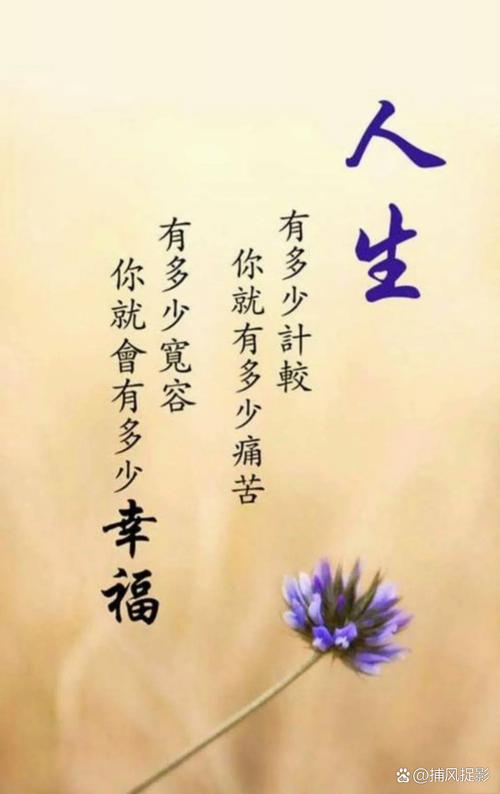 人生
有多少計較
你就有多少痛苦
有多少寬容
你就會有多少幸福
@捕风捉影